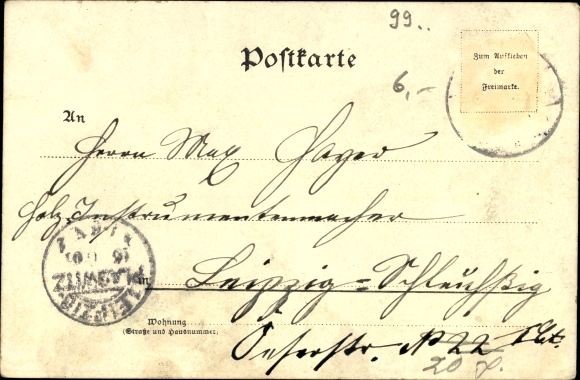 99..
Postkarte
6,-
Zum Aufkleben
der
Freimarke.
An
Herrn Max Hayer
Holz Instrumentenmacher
in Leipzig-Schleußig
Wohnung
(Straße und Hausnummer)
№ 22
20
LEIPZIG-
PLAGWITZ